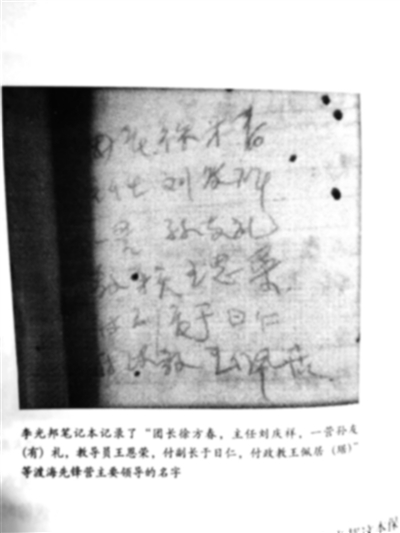 团长徐方春
主任刘庆祥
一营 孙友礼
教 王恩荣
于日仁
李光邦笔记本记录了“团长徐方春，主任刘庆祥，一营孙友
(有）礼，教导员王恩荣，付副长于日仁，付政教王佩居（琚）”
等渡海先锋营主要领导的名字